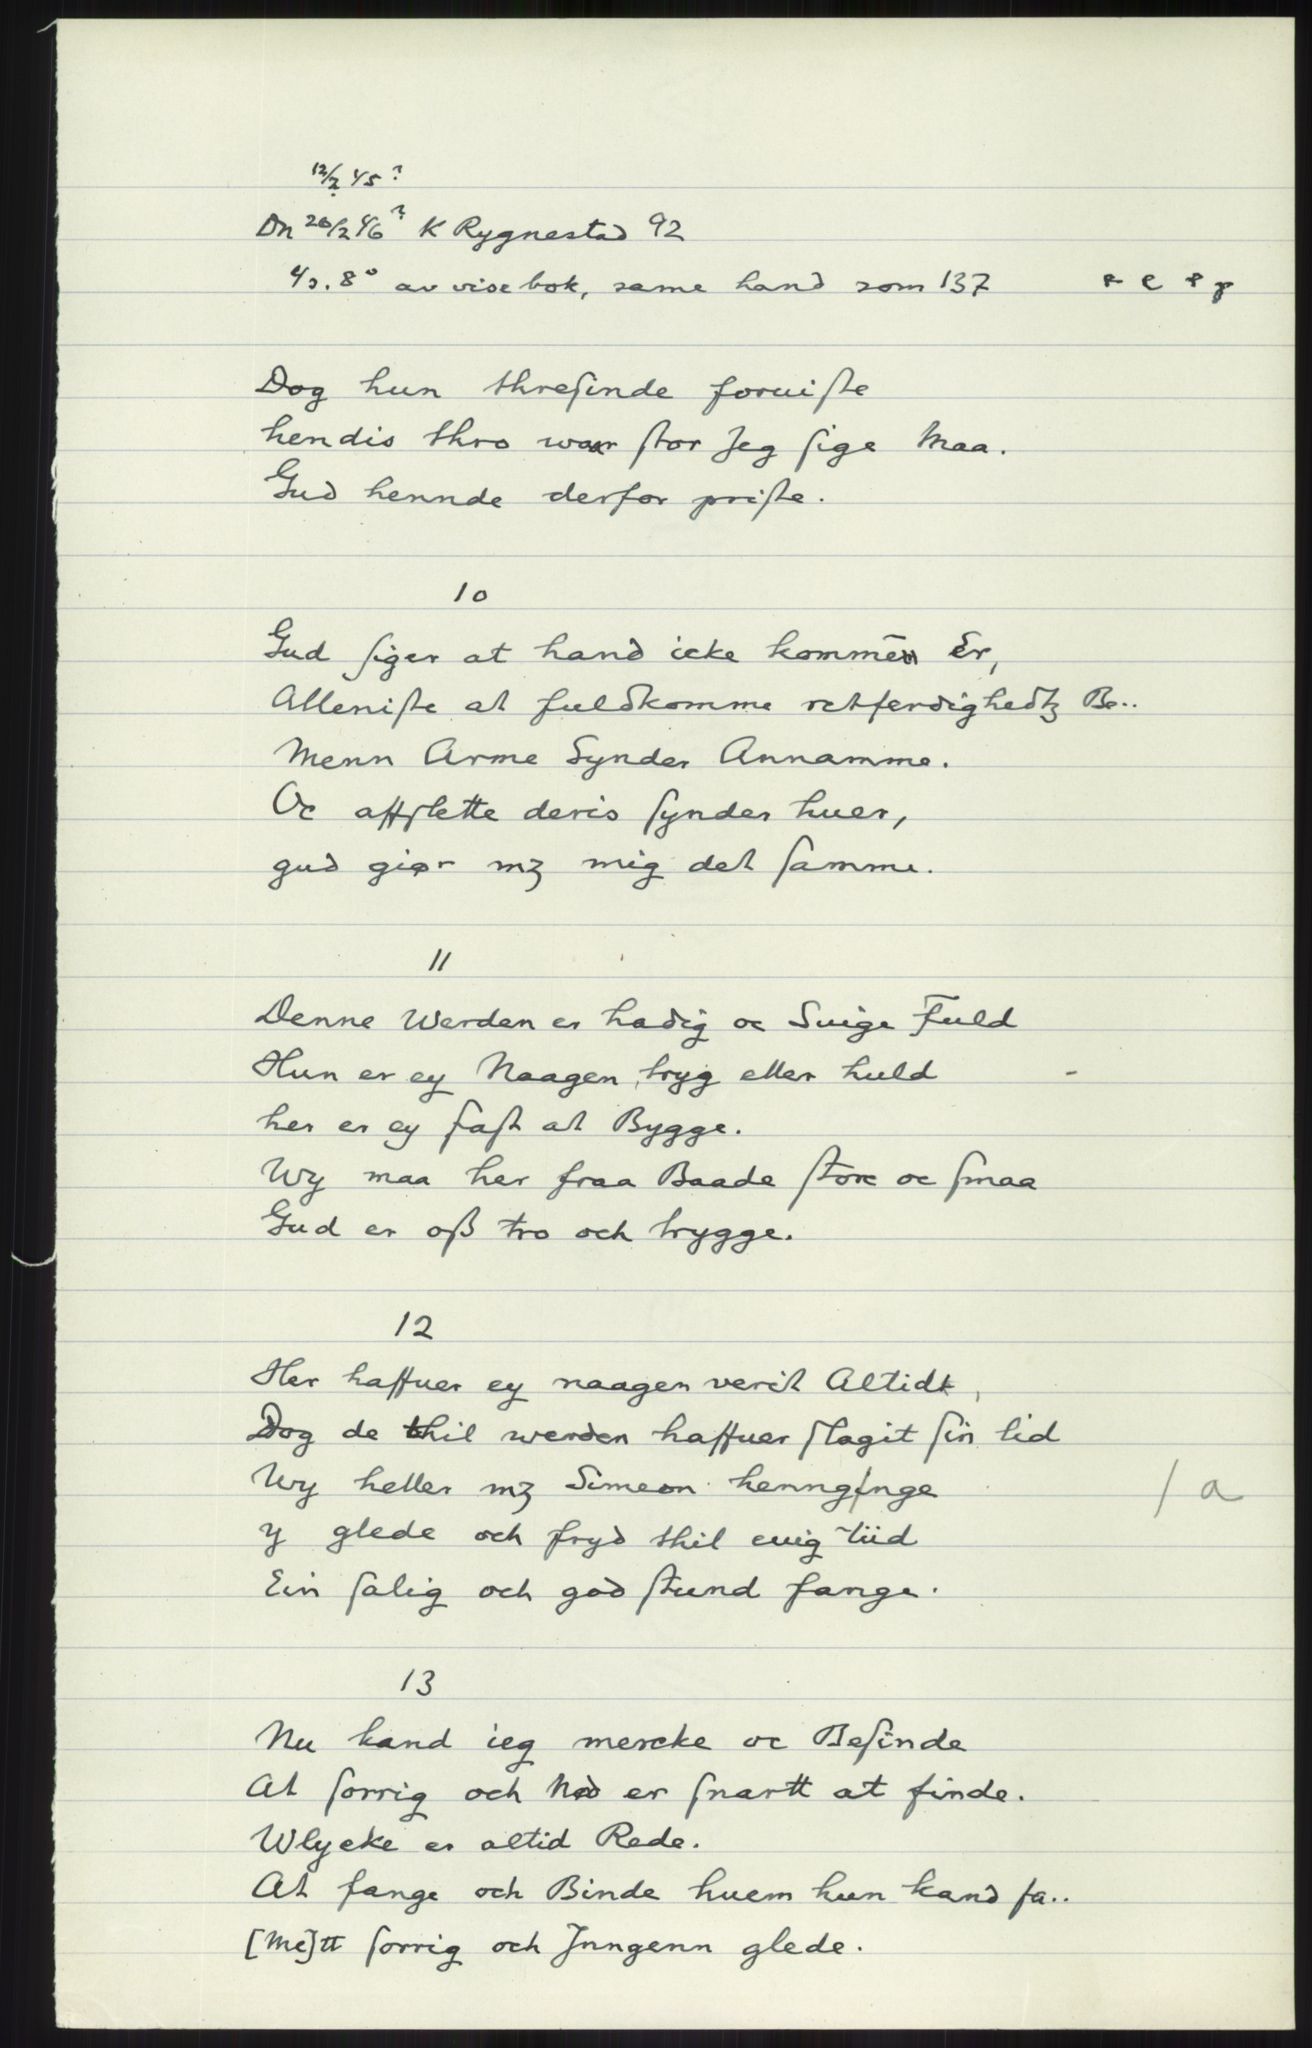 12/2 45?
Dn 26/2 46? K Rygnestad 92
4s. 8° av visebok, same hand som 137
Dog hun threſinde foruiſte
hendis thro waar ſtor Jeg ſige Maa.
Gud hennde derfor priſte.
10
Gud ſiger at hand icke kommēn Er,
Alleniſte at fuldkomme retferdighedꝫ Be..
Menn Arme Synder Annamme.
Oc affſlette deris ſynder huer,
gud giør mꝫ mig det ſamme.
11
Denne Werden er hadig oc Suige Fuld
Hun er ey Naagen tryg eller huld
her er ey faſt at Bygge.
Wy maa her fraa Baade ſtore oc ſmaa
Gud er oß tro och trygge.
12
Her haffuer ey naagen verit Altidt,
Dog de thil werden haffuer ſlagit ſin lid
Wy heller mꝫ Simeon henngſnge / a
y glede och fryd thil euig tiid
Ein ſalig och god ſtund fange.
13
Nu kand ieg mercke oc Befinde
At ſorrig och Nød er ſnartt at finde.
Wlycke er altid Rede.
At fange och Binde huem hun kand fa..
[Me]tt ſorrig och Jnngenn glede.